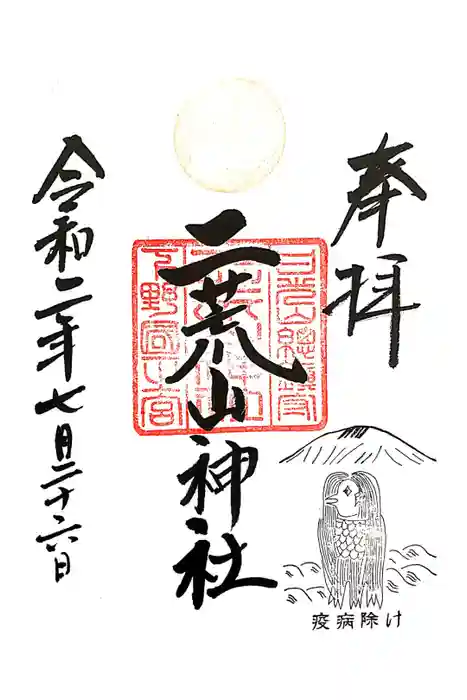 奉拝
二荒山神社
令和二年七月二十六日
疫病除け